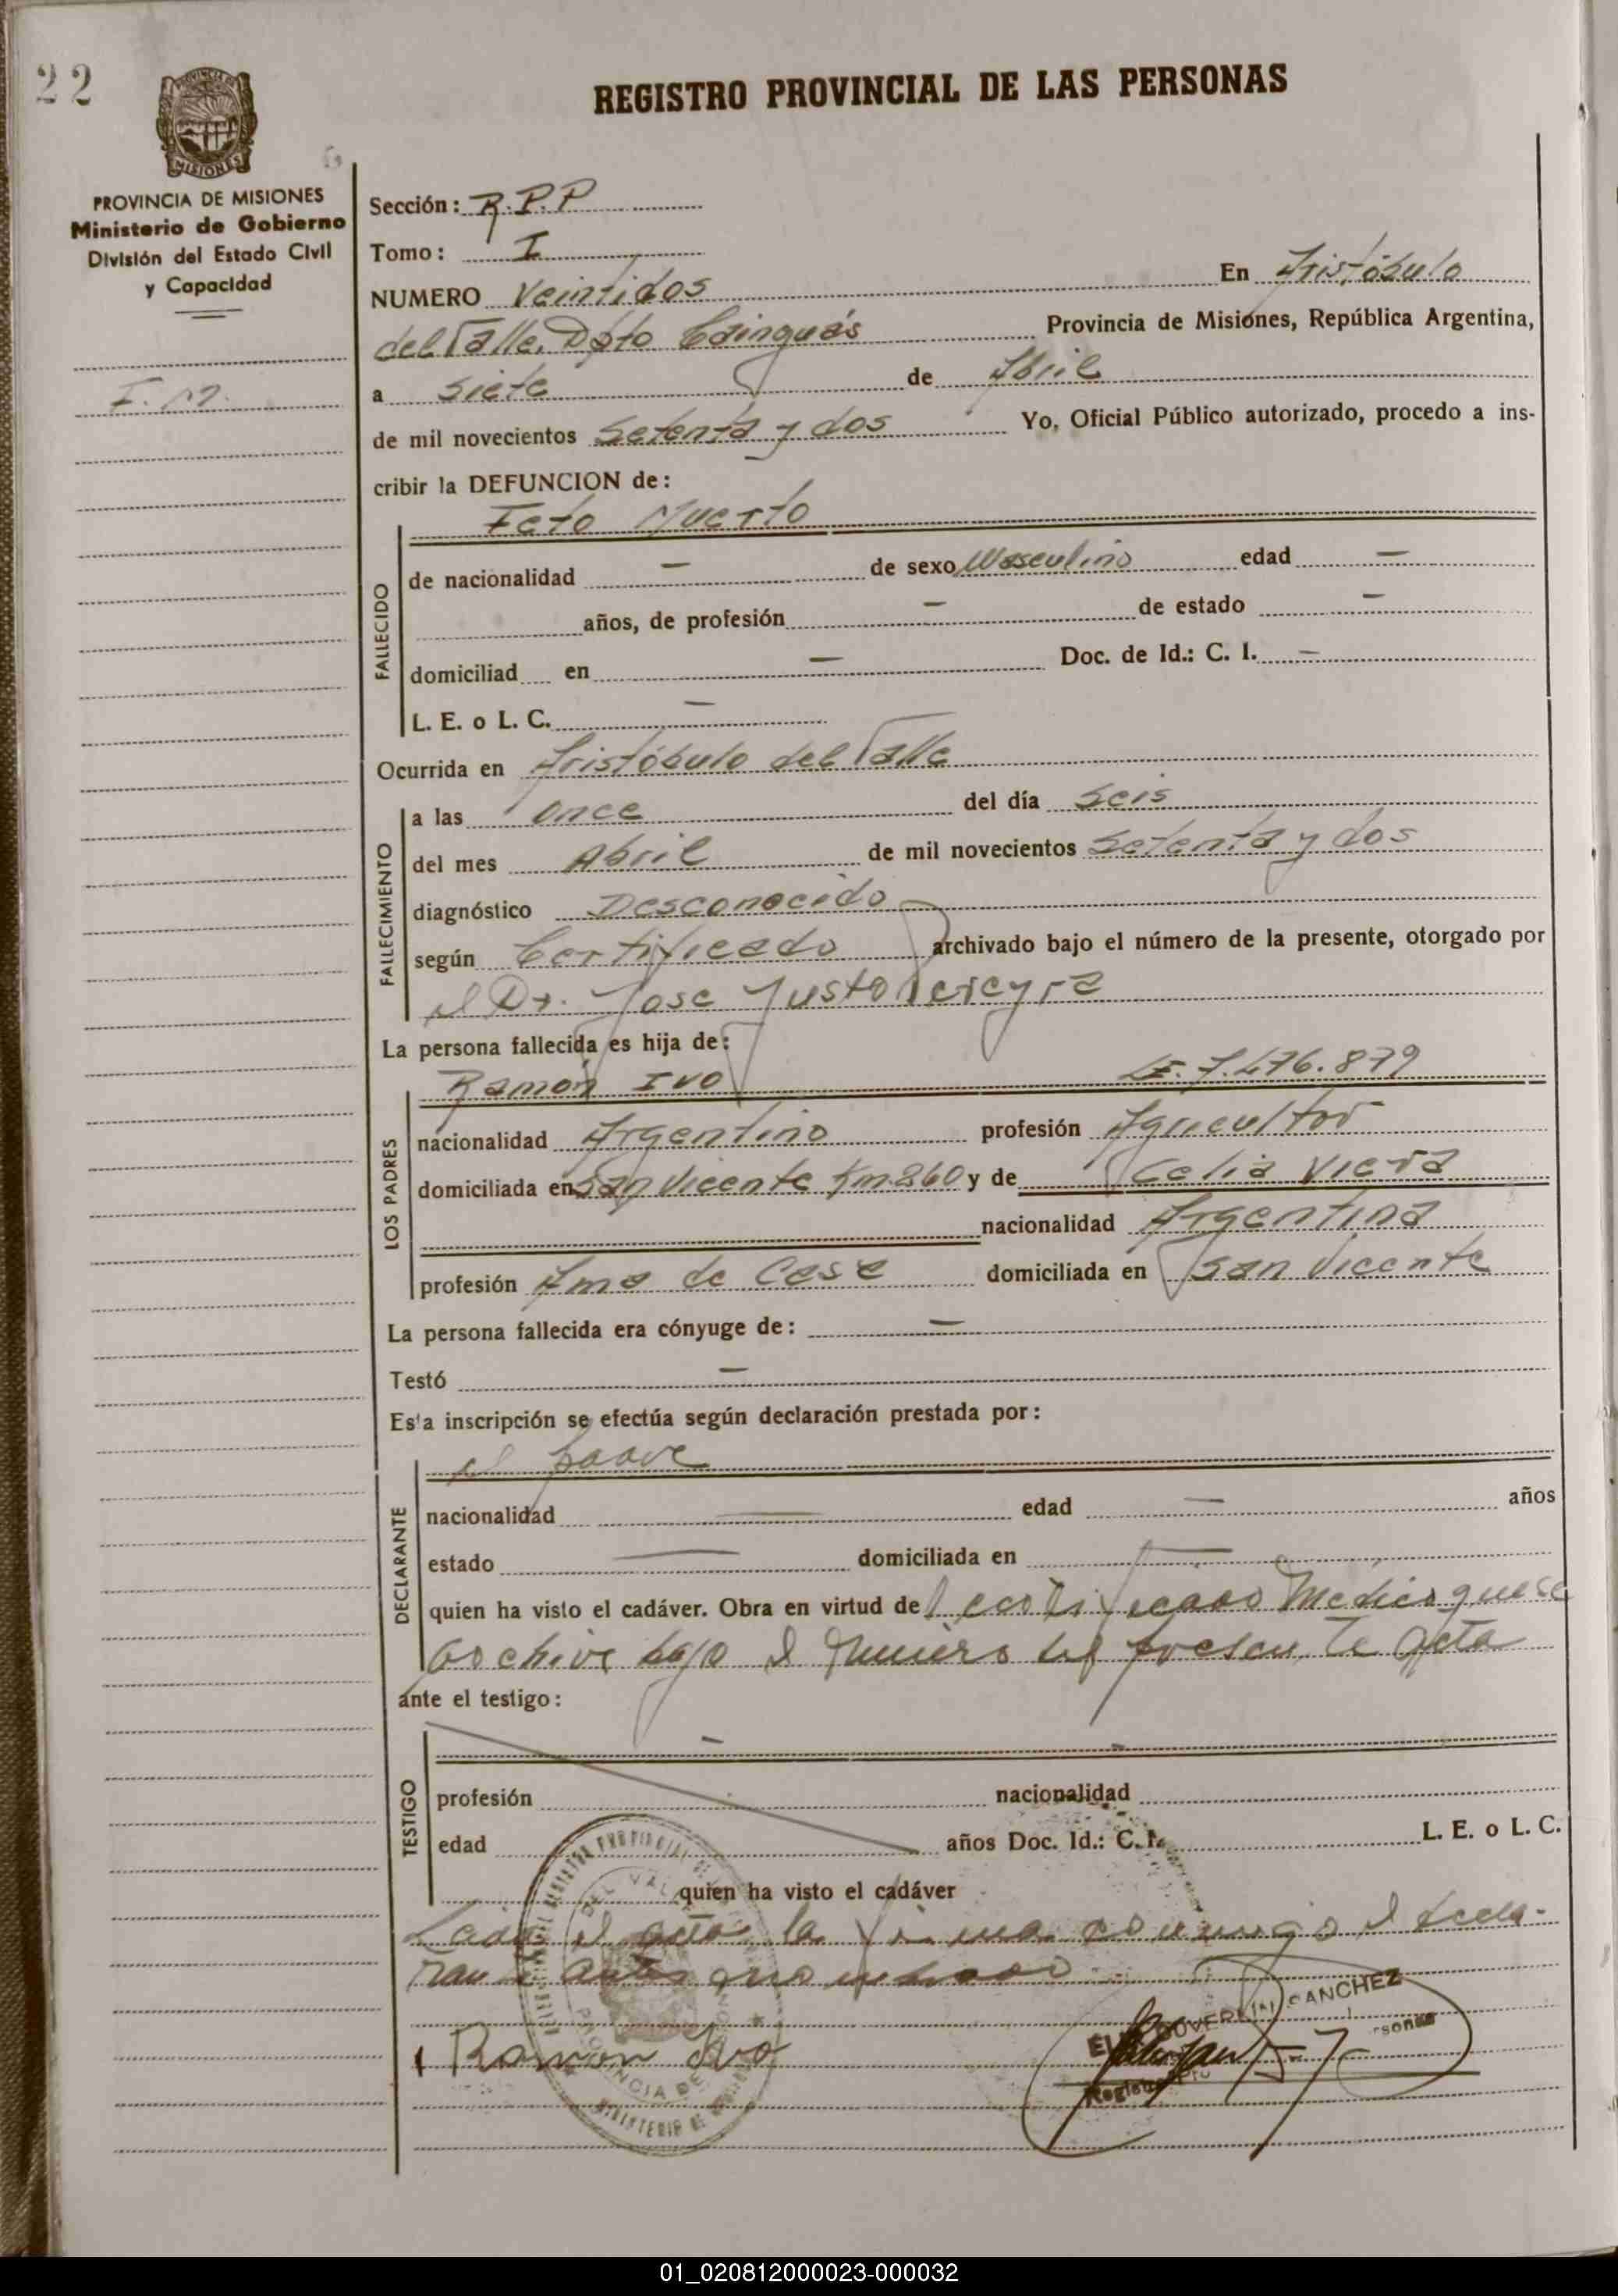 22
REGISTRO PROVINCIAL DE LAS PERSONAS
PROVINCIA DE MISIONES
Ministerio de Gobierno
División del Estado Civil
y Capacidad
F. M.
Sección: R.P.P
Tomo: I
NUMERO Veintidos En Aristóbulo
del Valle. Dpto Cainguás Provincia de Misiones, República Argentina,
a siete de Abril
de mil novecientos Setenta y dos Yo, Oficial Público autorizado, procedo a ins-
cribir la DEFUNCION de:
Feto Muerto
FALLECIDO
de nacionalidad — de sexo Masculino edad —
años, de profesión — de estado —
domiciliad en — Doc. de Id.: C. I. —
L. E. o L. C. —
Ocurrida en Aristóbulo del Valle
FALLECIMIENTO
a las once del día Seis
del mes Abril de mil novecientos Setenta y dos
diagnóstico Desconocido
según Certificado archivado bajo el número de la presente, otorgado por
el Dr. Jose Justo Pereyra
La persona fallecida es hija de:
Ramón Ivo LE. 7.476.879
LOS PADRES
nacionalidad Argentino profesión Agricultor
domiciliada en San Vicente Km.860 y de Celia Viera
nacionalidad Argentina
profesión Ama de Casa domiciliada en San Vicente
La persona fallecida era cónyuge de: —
Testó —
Es'a inscripción se efectúa según declaración prestada por:
el padre
DECLARANTE
nacionalidad — edad — años
estado — domiciliada en —
quien ha visto el cadáver. Obra en virtud del certificado Medico que se
archiva bajo el número del presente acta
ante el testigo:
TESTIGO
profesión nacionalidad
edad años Doc. Id.: C. I. L. E. o L. C.
quien ha visto el cadáver
Leida el acta la firma conmigo el decla-
rante antes nombrado
Ramon Ivo
SANCHEZ
01_020812000023-000032